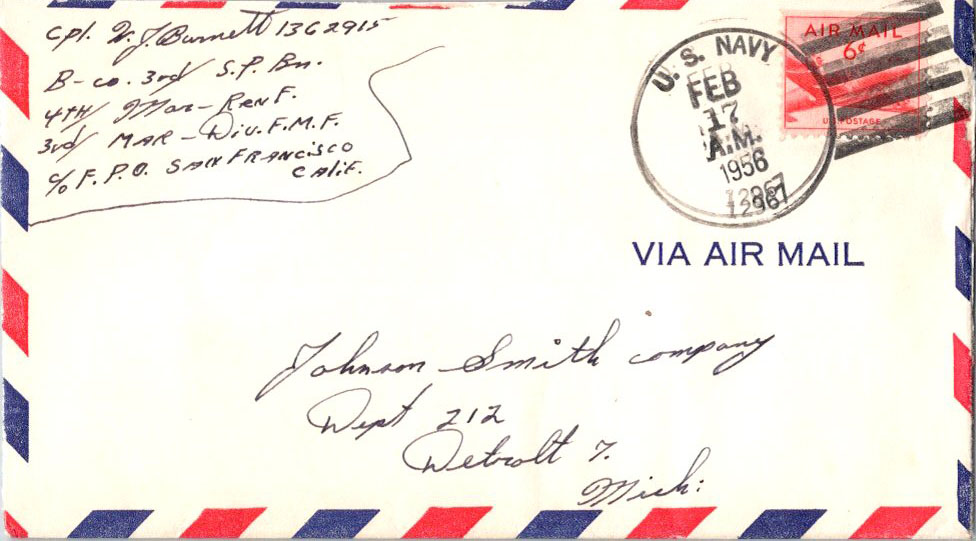 Cpl. W. J. Burnett 1362915
B-co. 3rd/ S.P. Bn.
4TH/ Mar-Renf.
3rd/ MAR-Div. F.M.F.
c/o F.P.O. SAN FRANCISCO
CALIF.
U.S. NAVY
FEB
17
A.M.
1956
12967
AIR MAIL
6¢
U.S. POSTAGE
VIA AIR MAIL
Johnson Smith company
Dept 212
Detroit 7.
Mich: